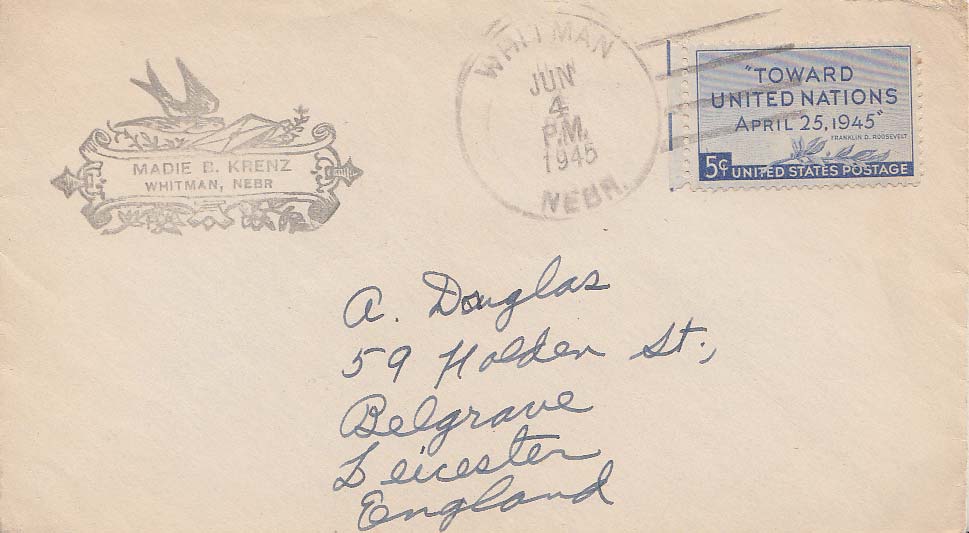 MADIE B. KRENZ
WHITMAN, NEBR
WHITMAN
JUN
4
P.M.
1945
NEBR.
"TOWARD
UNITED NATIONS
APRIL 25, 1945"
FRANKLIN D. ROOSEVELT
5¢ UNITED STATES POSTAGE
A. Douglas
59 Holden St.,
Belgrave
Leicester
England